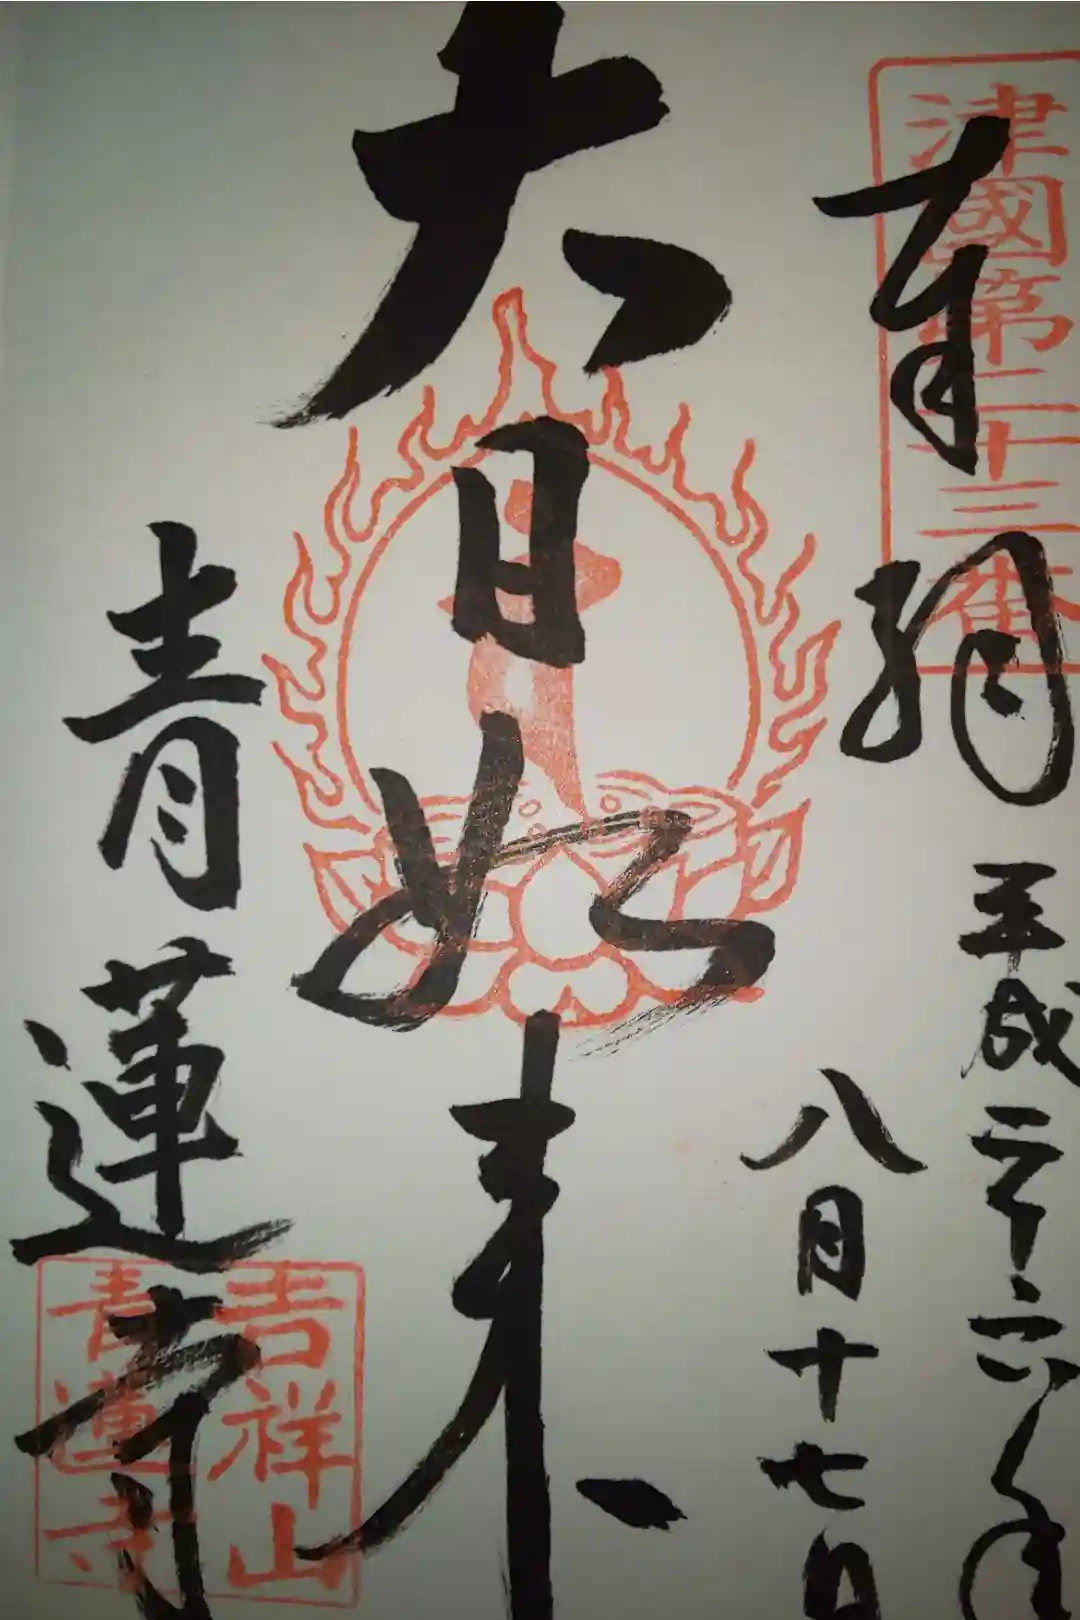 津國第二十三番
奉
平成二十六年
八月十七日
大日如来
青蓮寺
吉祥山
青蓮寺